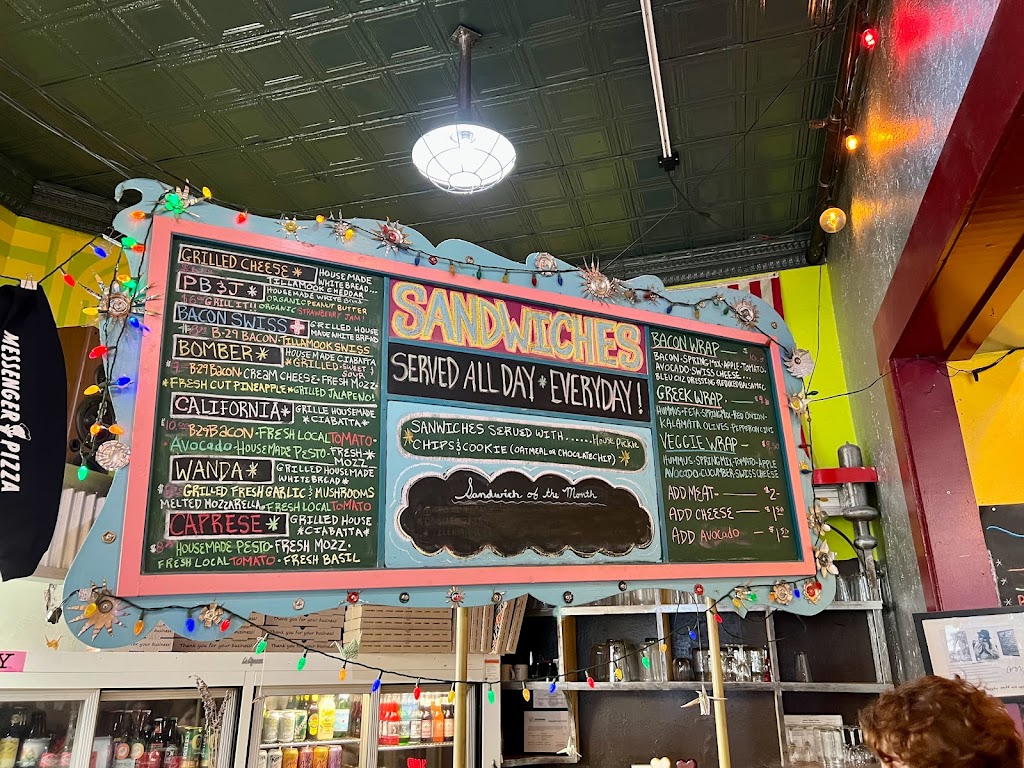 GRILLED CHEESE*
HOUSE MADE
WHITE BREAD...
TILLAMOOK CHEDDAR
PB&J*
HOUSEMADE WHITE
GRILL IT!! ORGANIC PEANUT BUTTER
ORGANIC STRAWBERRY JAM!
BACON SWISS
GRILLED HOUSE
MADE WHITE BREAD
B-29 BACON-TILLAMOOK SWISS
BOMBER*
HOUSE MADE CIABATTA
*GRILLED-SWEET &
SOUR
B29 BACON-CREAM CHEESE-FRESH MOZZ
*FRESH CUT PINEAPPLE*GRILLED JALAPENO!
CALIFORNIA*
GRILLE HOUSEMADE
*CIABATTA*
B29 BACON-FRESH LOCAL TOMATO-
Avocado-HOUSEMADE PESTO-FRESH
MOZZ
WANDA*
GRILLED HOUSE MADE
WHITE BREAD*
GRILLED FRESH GARLIC & MUSHROOMS
MELTED MOZZARELLA-FRESH LOCAL TOMATO
CAPRESE*
GRILLED HOUSE
*CIABATTA*
HOUSEMADE PESTO-FRESH MOZZ-
FRESH LOCAL TOMATO-FRESH BASIL
SANDWICHES
SERVED ALL DAY * EVERYDAY!
SANWICHES SERVED WITH......House Pickle
CHIPS & COOKIE (OATMEAL OR CHOCOLATE CHIP)
Sandwich of the Month
BACON WRAP
BACON-SPRING MIX-APPLE-TOMATO-
AVOCADO-SWISS CHEESE...
BLEU CHZ DRESSING
GREEK WRAP
HUMMUS-FETA-SPRING MIX-RED ONION-
KALAMATA OLIVES-PEPPERONCINIS
VEGGIE WRAP
HUMMUS-SPRING MIX-TOMATO-APPLE
AVOCADO-CUCUMBER-SWISS CHEESE
ADD MEAT- $2-
ADD CHEESE- $1.50
ADD AVOCADO- $1.50
MESSENGER PIZZA
Thank you for your business
Thank you for your business